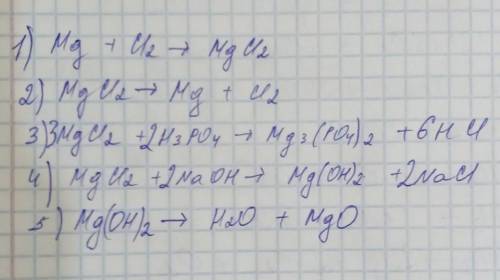 1) Mg + Cl2 → MgCl2
2) MgCl2 → Mg + Cl2
3) 3MgCl2 + 2H3PO4 → Mg3(PO4)2 + 6HCl
4) MgCl2 + 2NaOH → Mg(OH)2 + 2NaCl
5) Mg(OH)2 → H2O + MgO